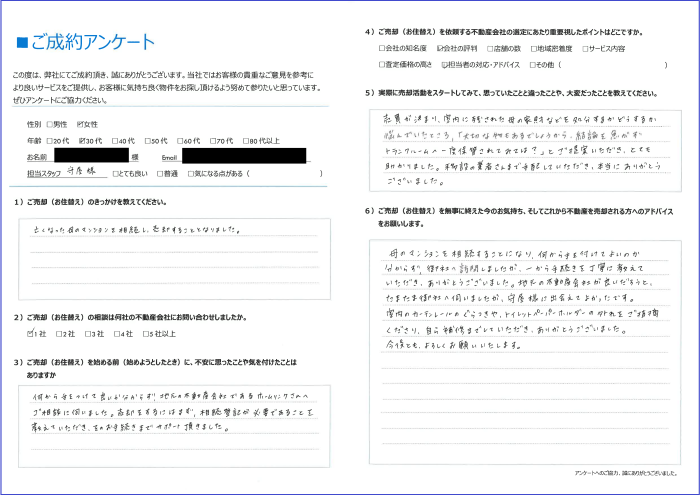 ■ご成約アンケート
この度は、弊社にてご成約頂き、誠にありがとうございます。当社ではお客様の貴重なご意見を参考に
より良いサービスをご提供し、お客様に気持ち良く物件をお探し頂けるよう努めて参りたいと思っています。
ぜひアンケートにご協力ください。
性別 □男性 ☑女性
年齢 □20代 ☑30代 □40代 □50代 □60代 □70代 □80代以上
お名前 様 Email
担当スタッフ 守屋様 □とても良い □普通 □気になる点がある( )
1)ご売却(お住替え)のきっかけを教えてください。
亡くなった母のマンションを相続し、売却することとなりました。
2)ご売却(お住替え)の相談は何社の不動産会社にお問い合わせしましたか。
☑1社 □2社 □3社 □4社 □5社以上
3)ご売却(お住替え)を始める前(始めようとしたとき)に、不安に思ったことや気を付けたことは
ありますか
何から手をつけて良いか分からず、地元の不動産会社であるホームリンクさんへ
ご相談に伺いました。売却をするにはまず、相続登記が必要であることを
教えていただき、そのお手続きまでサポート頂きました。
4)ご売却(お住替え)を依頼する不動産会社の選定にあたり重要視したポイントはどこですか。
□会社の知名度 ☑会社の評判 □店舗の数 □地域密着度 □サービス内容
□査定価格の高さ ☑担当者の対応・アドバイス □その他( )
5)実際に売却活動をスタートしてみて、思っていたことと違ったことや、大変だったことを教えてください。
売買が決まり、室内に残された母の家財などを処分するかどうするか
悩んでいたところ、「大切な物もあるでしょうから、結論を急がず
トランクルームへ一度保管されてみては?」とご提案いただき、とても
助かりました。引越の業者さんまで手配していただき、本当にありがとう
ございました。
6)ご売却(お住替え)を無事に終えた今のお気持ち、そしてこれから不動産を売却される方へのアドバイス
をお願いします。
母のマンションを相続することになり、何から手を付けてよいのか
分からず、御社へ訪問しましたが、一から手続きを丁寧に教えて
いただき、ありがとうございました。地元の不動産会社が良いだろうと、
たまたま御社へ伺いましたが、守屋様に出会えてよかったです。
室内のカーテンレールのぐらつきや、トイレットペーパーホルダーの外れをご指摘
くださり、自ら補修までしていただき、ありがとうございました。
今後とも、よろしくお願いいたします。
アンケートへのご協力、誠にありがとうございました。